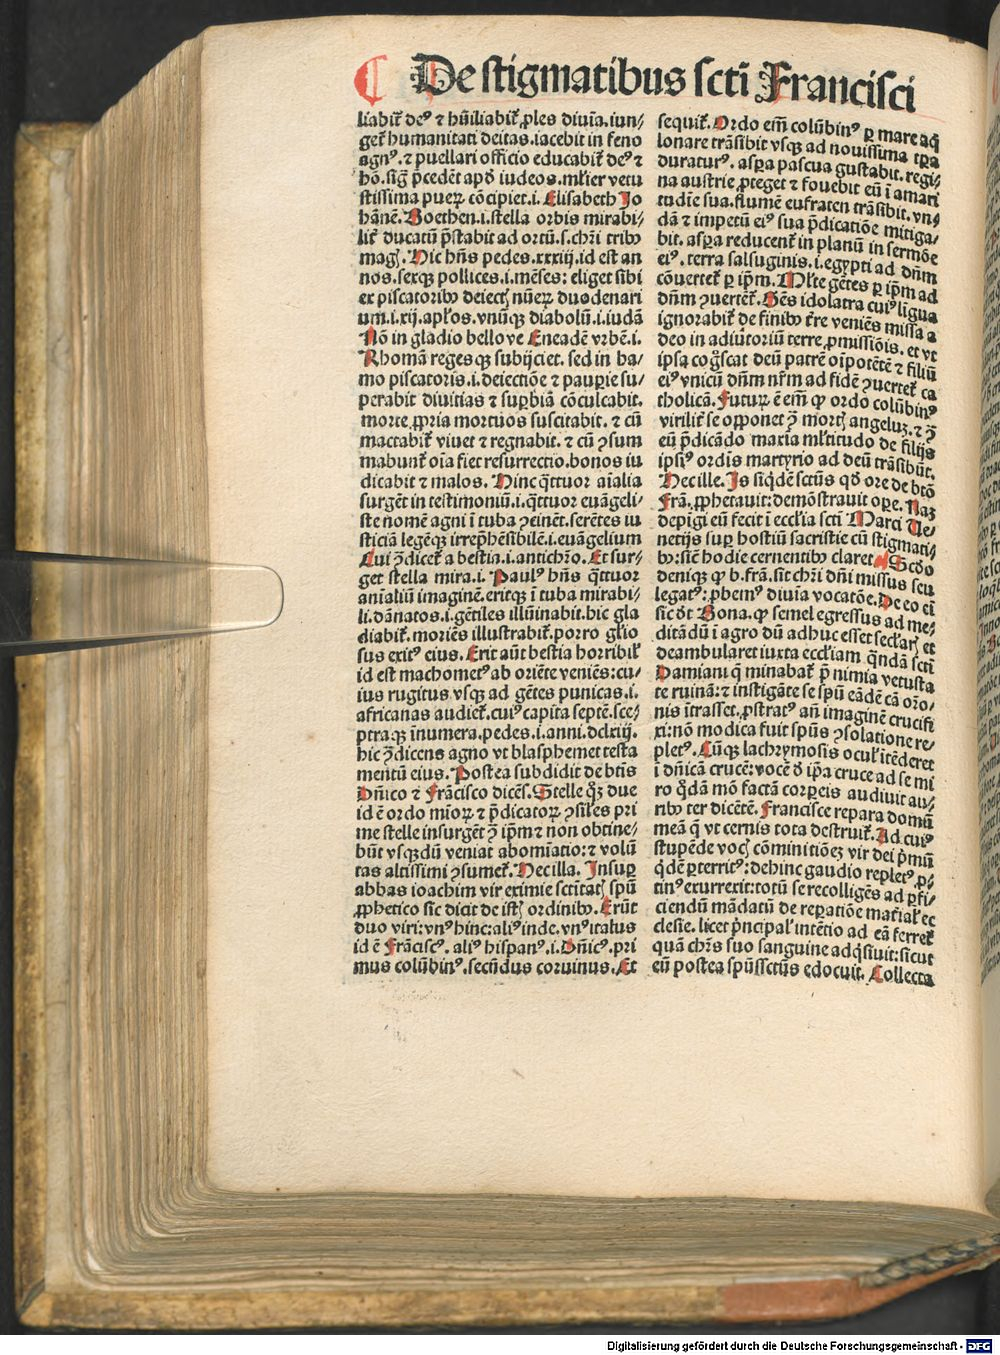 ¶ De stigmatibus scti Francisci
liabit᷑ deꝰ ⁊ hũiliabit᷑ ꝓles diuĩa.iun⸗
get᷑ humanitati deitas.iacebit in feno
agnꝰ.⁊ puellari officio educabit᷑ deꝰ ⁊
hõ.sig̃ p̃cedẽt apd̃ iudeos.ml̃ier vetu
stissima pueꝝ cõcipiet.i. Elisabeth Jo
hãnẽ. Boethen.i.stella orbis mirabi⸗
lit᷑ ducatũ p̃stabit ad ortũ.s.chr̃i tribꝰ
magꝭ. Hic hñs pedes.xxxiij.id est an
nos.sexqꝫ pollices.i.mẽses: eliget sibi
ex piscatoribꝰ deiectꝭ nũeꝝ duodenari
um.i.xij.apl̃os.vnũqꝫ diabolũ.i.iudã
Nõ in gladio bello ve Eneadẽ vrbẽ.i.
Rhomã reges qꝫ subijciet. sed in ha⸗
mo piscatoris.i.deiectiõe ⁊ paupie su⸗
perabit diuitias ⁊ supbiã cõculcabit.
morte ꝓpria mortuos suscitabit. ⁊ cũ
mactabit᷑ viuet ⁊ regnabit. ⁊ cũ ꝯsum
mabunt᷑ oĩa fiet resurrectio.bonos iu
dicabit ⁊ malos. Hinc q̃ttuor aĩalia
surgẽt in testimoniũ.i.q̃ttuor euãgeli⸗
ste nomẽ agni ĩ tuba ꝯcinẽt.serẽtes iu
sticiã legẽqꝫ irrep̃hẽsibilẽ.i.euãgelium
Cui ꝯ̃dicet᷑ a bestia.i.antichr̃o. Et sur⸗
get stella mira.i. Paulꝰ hñs q̃ttuor
anĩaliũ imaginẽ.eritqꝫ ĩ tuba mirabi⸗
li.dãnatos.i.gẽtiles illũinabit.hic gla
diabit᷑.moriẽs illustrabit᷑.porro gl̃io
sus exitꝰ eius. Erit aũt bestia horribil᷑
id est machometꝰ ab oriẽte veniẽs:cu⸗
ius rugitus vsqꝫ ad gẽtes punicas.i.
africanas audiet᷑.cuiꝰ capita septẽ.sce⸗
ptra qꝫ ĩnumera.pedes.i.anni.dclxiij.
hic ꝯ̃dicens agno vt blasphemet testa
mentũ eius. Postea subdidit de btĩs
Dñico ⁊ Frãcisco dicẽs. Stelle q̃ꝫ due
id ẽ ordo mĩoꝝ ⁊ p̃dicatoꝝ ꝯsiles pri
me stelle insurgẽt ꝯ̃ ip̃m ⁊ non obtine⸗
bũt vsqꝫdũ veniat abomĩatio: ⁊ volũ
tas altissimi ꝯsumet᷑. Hec illa. Insup
abbas ioachim vir eximie sctĩtatꝭ spũ
ꝓphetico sic dicit de istꝭ ordinibꝰ. Erũt
duo viri:vnꝰ hinc:aliꝰ inde.vnꝰ italus
id ẽ Frãciscꝰ. aliꝰ hispanꝰ.i. Dñicꝰ.pri
mus colũbinꝰ.secũdus coruinus. Et
sequit᷑. Ordo em̃ colũbinꝰ ꝑ mare aq̃
lonare trãsibit vsqꝫ ad nouissima tꝑa
duraturꝰ. aspa pascua gustabit. regi⸗
na austrie ꝓteget ⁊ fouebit eũ ĩ amari
tudĩe sua.flumẽ eufraten trãsibit.vn⸗
dã ⁊ impetũ eiꝰ sua p̃dicatiõe mitiga⸗
bit. aspa reducent᷑ in planũ in sermõe
eiꝰ. terra salsuginis.i.egypti ad dñm
cõuertet᷑ ꝑ ip̃m. Ml̃te gẽtes ꝑ ip̃m ad
dñm ꝯuertẽt᷑. Gẽs idolatra cuiꝰ ligua
ignorabit᷑ de finibꝰ tr̃e veniẽs missa a
deo in adiutoriũ terre ꝓmissiõis. et vt
ipsa cog̃scat deũ patrẽ oĩpotẽtẽ ⁊ filiũ
eiꝰ vnicũ dñm nr̃m ad fidẽ ꝯuertet᷑ ca
tholicã. Futurꝝ ẽ em̃ ꝙ ordo colũbinꝰ
virilit᷑ se opponet ꝯ̃ mortꝭ angeluꝫ. ⁊ ꝯ̃
eũ p̃dicãdo maxia ml̃titudo de filijs
ipsiꝰ ordĩs martyrio ad deũ trãsibũt.
Hec ille. Is siq̃dẽ sctũs qd̃ ore de btõ
Frã. ꝓphetauit:demõstrauit ope. Naꝫ
depĩgi eũ fecit ĩ eccl̃ia sctĩ Marci Ve⸗
netijs sup hostiũ sacristie cũ stigmati⸗
bꝰ:sic̃ hodie cernentibꝰ claret. ¶ Scd̃o
deniqꝫ ꝙ b.frã.sit chr̃i dñi missus seu
legatꝰ: ꝓbemꝰ diuĩa vocatõe. De eo ei
sic dt̃ Bona. ꝙ semel egressus ad me⸗
ditãdũ ĩ agro dũ adhuc esset secl̃arꝭ et
deambularet iuxta eccl̃iam q̃ndã sctĩ
Damiani q̃ minabat᷑ p̃ nimia vetusta
te ruinã: ⁊ instigãte se spũ eãdẽ cã or̃o⸗
nis ĩtrasset.ꝓstratꝰ añ imaginẽ crucifi
xi:nõ modica fuit spũs ꝯsolatione re⸗
pletꝰ. Cũqꝫ lachrymosis ocul᷑ ĩtẽderet
ĩ dñicã crucẽ:vocẽ d̃ ip̃a cruce ad se mi
ro q̃dã mõ factã corpeis audiuit au⸗
ribꝰ ter dicẽtẽ. Francisce repara domũ
meã q̃ vt cernis tota destruit᷑. Ad cuiꝰ
stupẽde vocꝭ cõminitiõeꝫ vir dei p̃mũ
q̃dẽ ꝑterritꝰ: dehinc gaudio repletꝰ.ꝓ⸗
tinꝰ exurrexit:totũ se recolligẽs ad pfi⸗
ciendũ mãdatũ de repatiõe mat̃ial᷑ ec
clesie. licet p̃ncipal᷑ intẽtio ad eã ferret᷑
quã chr̃s suo sanguine adq̃siuit:sicut
eũ postea spũssctũs edocuit. Collecta
Digitalisierung gefördert durch die Deutsche Forschungsgemeinschaft - DFG